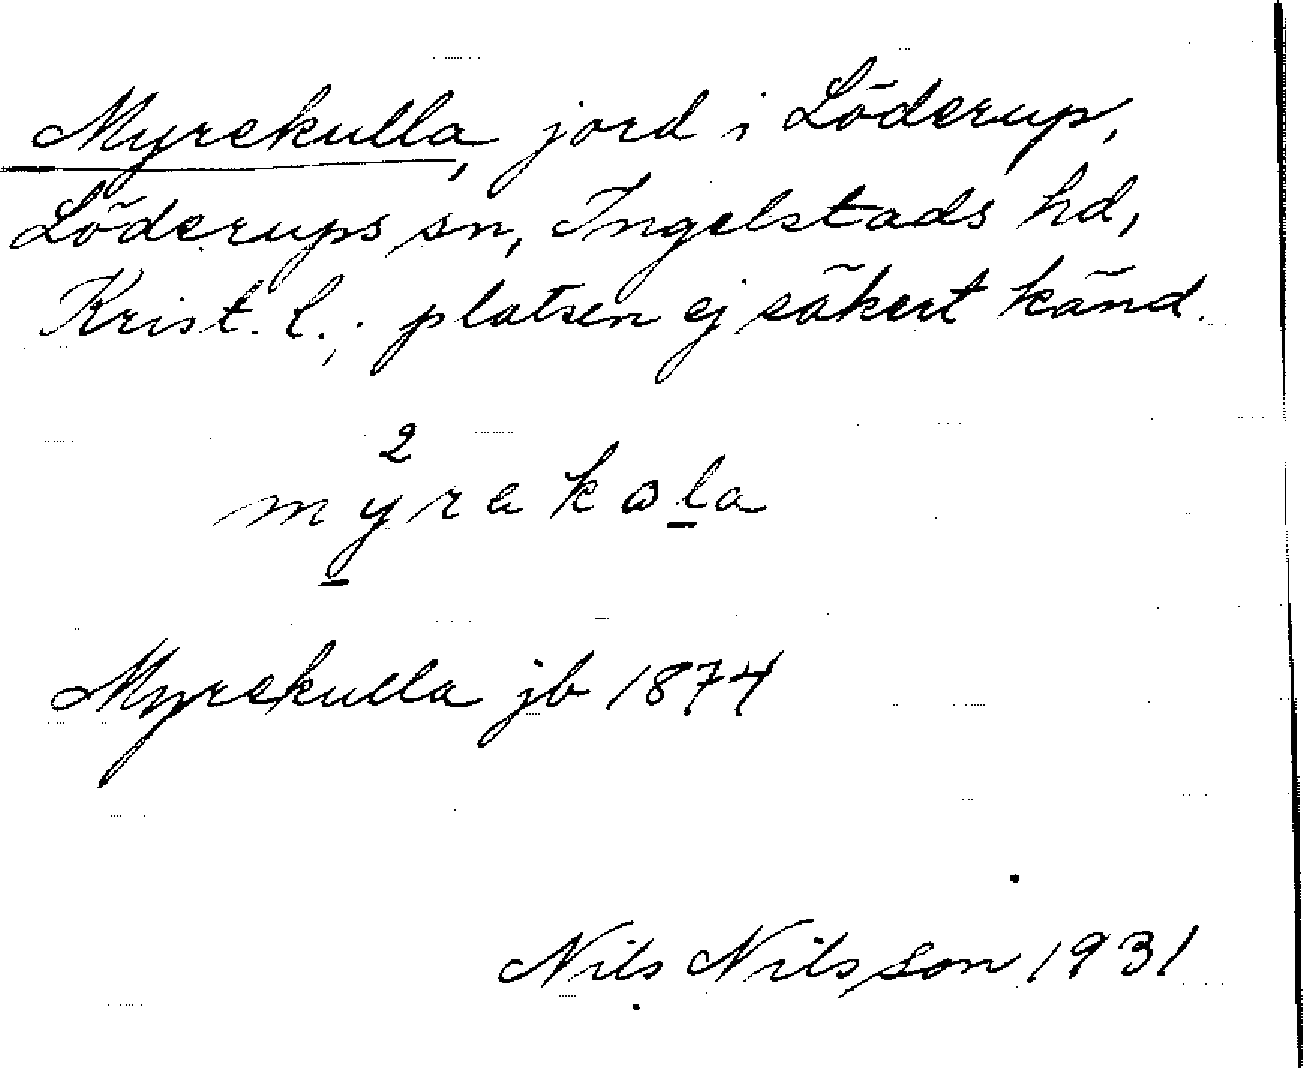 Myrekulla, jord i Löderup,
Löderups sn, Ingelstads hd,
Krist. l.; platsen ej säkert känd.
2
myrekola
Myrekulla jb 1874
Nils Nilsson 1931